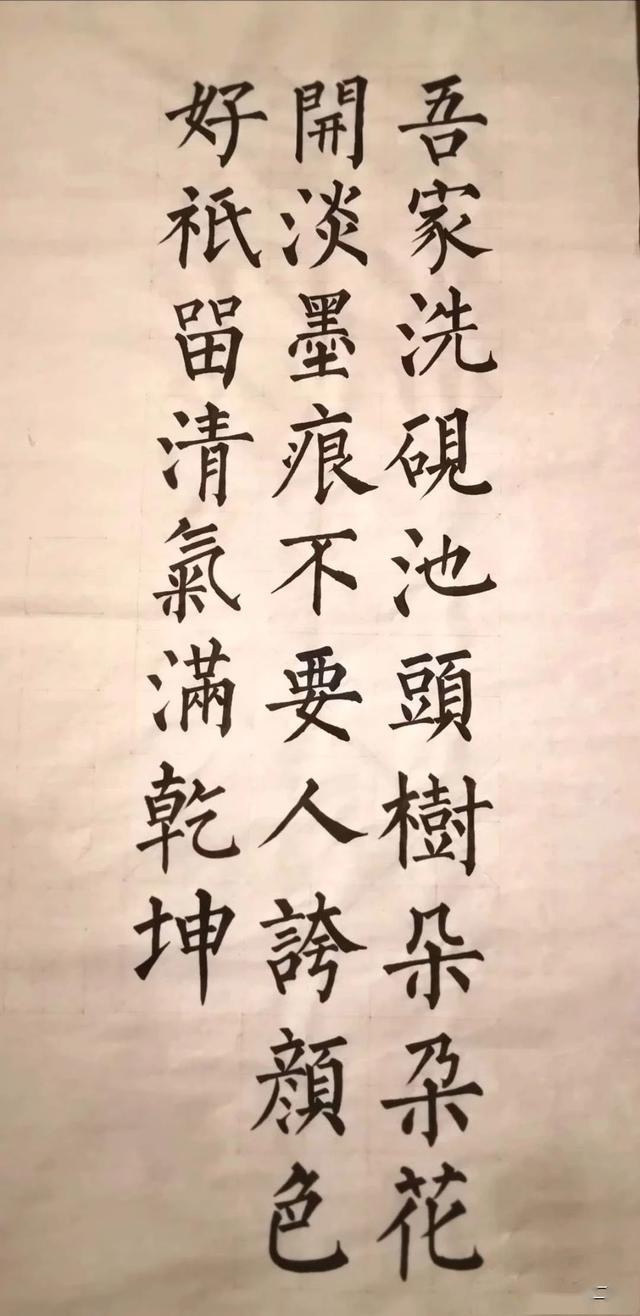 吾家洗硯池頭樹朵朶花
開淡墨痕不要人誇顔色
好祇畱清氣滿乾坤
二